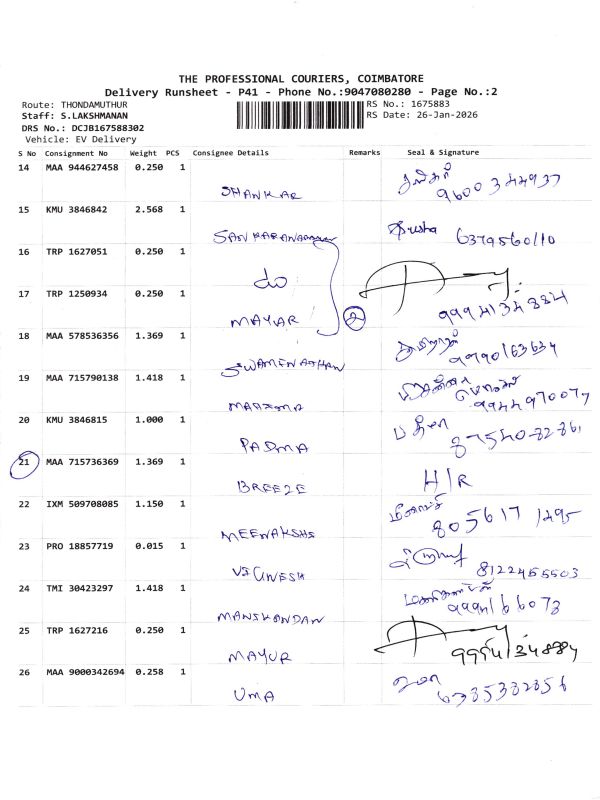 THE PROFESSIONAL COURIERS, COIMBATORE
Delivery Runsheet - P41 - Phone No.:9047080280 - Page No.:2
Route: THONDAMUTHUR
RS No.: 1675883
Staff: S.LAKSHMANAN
RS Date: 26-Jan-2026
DRS No.: DCJB167588302
Vehicle: EV Delivery
S No Consignment No Weight PCS Consignee Details Remarks Seal & Signature
14 MAA 944627458 0.250 1
SHANKAR 9600344937
15 KMU 3846842 2.568 1
6379560110
16 TRP 1627051 0.250 1
do
17 TRP 1250934 0.250 1
MAYUR 2
18 MAA 578536356 1.369 1
SWAMINATHAN
19 MAA 715790138 1.418 1
9944970077
20 KMU 3846815 1.000 1
PADMA 87540-82-861
21 MAA 715736369 1.369 1
BREEZE H/R
22 IXM 509708085 1.150 1
MEENAKSHI 805617 1495
23 PRO 18857719 0.015 1
VIGNESH 8122455503
24 TMI 30423297 1.418 1
MANIKONDAN
25 TRP 1627216 0.250 1
MAYUR
26 MAA 9000342694 0.258 1
UMA உமா